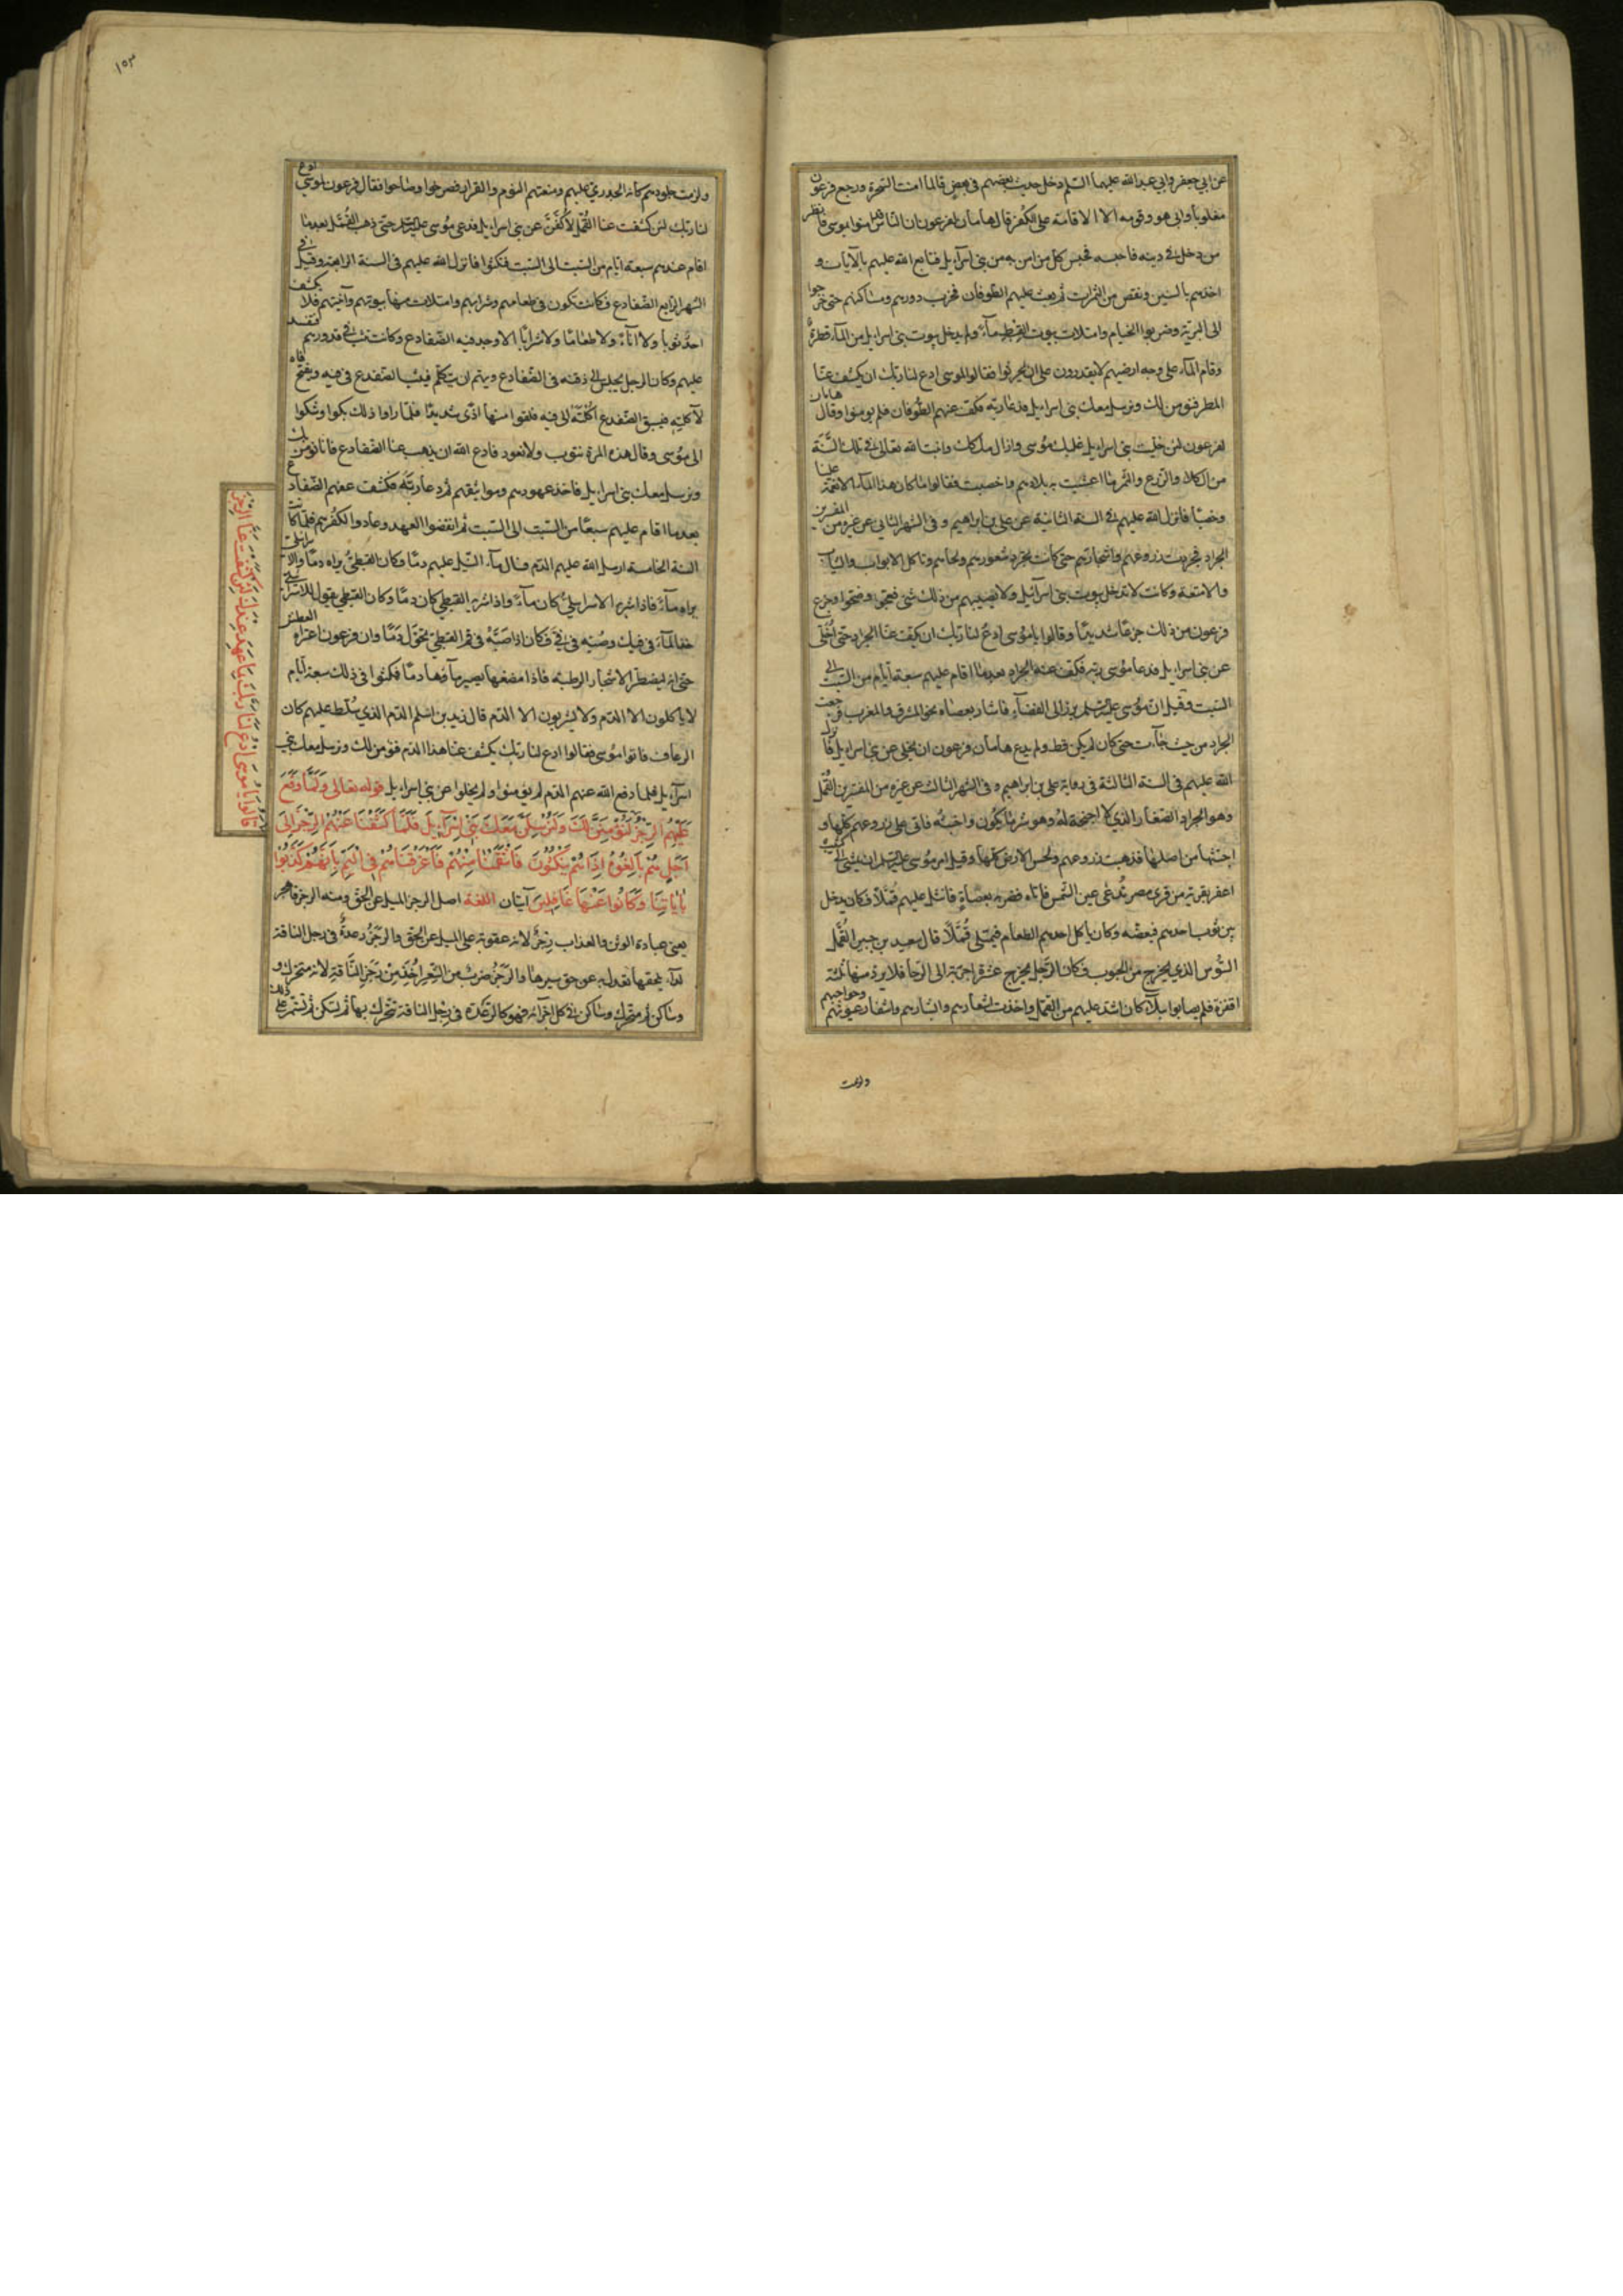 عن ابي جعفر وابي عبد الله عليهما السلم دخل حديث بعضهم في بعض قالوا لما امنت السحرة ورجع فرعون
مغلوبا وابى هو وقومه الا الاقامة على الكفر قال هامان لفرعون ان الناس قد امنوا بموسى فانظر
من دخل في دينه فاحبسه فحبس كل من امن به من بني اسرآءيل فتابع الله عليهم بالآيات و
اخذهم بالسنين ونقص من الثمرات ثم بعث عليهم الطوفان فخرب دورهم ومساكنهم حتى خرجوا
الى البرية وضربوا الخيام وامتلات بيوت القبط مآء ولم يدخل بيوت بني اسراءيل من المآء قطرة
وقام المآء على وجه ارضيهم لا يقدرون على ان يحرثوا فقالوا لموسى ادع لنا ربك ان يكشف عنا
المطر فنؤمن لك ونرسل معك بني اسراءيل فدعا ربه فكف عنهم الطوفان فلم يومنوا وقال هامان
لفرعون لئن خليت بني اسراءيل غلبك موسى وازال ملكك وانبت الله تعالى في تلك السنة
من الكلاء والزرع والثمر ما اعشبت به بلادهم واخصبت فقالوا ما كان هذا المآء الا نعمة علينا
وخصبا فانزل الله عليهم في السنة الثانية عن علي بن ابراهيم وفي الشهر الثاني عن غيره من المفسرين
الجراد فجردت زروعهم واشجارهم حتى كانت تجرد شعورهم ولحاهم وتاكل الابواب والثياب
والامتعة وكانت لا تدخل بيوت بني اسرآئيل ولا يصيبهم من ذلك شئ فعجوا وضجوا وجزع
فرعون من ذلك جزعا شديدا وقالوا يا موسى ادع لنا ربك ان يكف عنا الجراد حتى اخلي
عن بني اسراءيل فدعا موسى ربه فكف عنه الجراد بعدما اقام عليهم سبعة ايام من السبت الى
السبت وقيل ان موسى عليه السلم برز الى الفضآء فاشار بعصاه نحو المشرق والمغرب فرجعت
الجراد من حيث جآءت حتى كان لم يكن قط ولم يدع هامان فرعون ان يخلي عن بني اسراءيل فانزل
الله عليهم في السنة الثالثة في رواية علي بن ابراهيم وفي الشهر الثالث عن غيره من المفسرين القمل
وهو الجراد الصغار الذي لا اجنحة له وهو شر ما يكون واخبثه فاتى على زروعهم كلها و
اجتثها من اصلها فذهبت زروعهم ولحس الارض كلها وقيل امر موسى عليه السلم ان يمشي الى كثيب
اعفر بقرية من قرى مصر تدعى عين الشمس فاتاه فضربه بعصاه فانثال عليهم قملا فكان يدخل
بين ثوب احدهم فيعضه وكان ياكل احدهم الطعام فيمتلى قملا قال سعيد بن جبير القمل
السوس الذي يخرج من الحبوب فكان الرجل يخرج عشرة اجربة الى الرحا فلا يرد منها ثلثة
اقفزة فلم يصابوا ببلاء كان اشد عليهم من القمل واخذت اشعارهم وابشارهم واشفار عيونهم وحواجبهم
ولزمت
١٥٣
ولزمت جلودهم كانه الجدري عليهم ومنعتهم النوم والقرار فصرخوا وصاحوا فقال فرعون لموسى ادع
لنا ربك لئن كشفت عنا القمل لاكفن عن بني اسراءيل فدعى موسى عليه السلم حتى ذهب القمل بعدما
اقام عندهم سبعة ايام من السبت الى السبت فنكثوا فانزل الله عليهم في السنة الرابعة وقيل في
الشهر الرابع الضفادع فكانت تكون في طعامهم وشرابهم وامتلات منها بيوتهم وآنيتهم فلا يكشف
احد ثوبا ولا انآء ولا طعاما ولا شرابا الا وجد فيه الضفادع وكانت تثب في قدورهم فتفسد
عليهم وكان الرجل يجلس الى ذقنه في الضفادع ويهم ان يتكلم فيثب الضفدع في فيه ويفتح فاه
لاكلته فيسبق الضفدع اكلته الى فيه فلقوا منها اذى شديدا فلما راوا ذلك بكوا وشكوا
الى موسى وقال هذه المرة نتوب ولا نعود فادع الله ان يذهب عنا الضفادع فانا نؤمن لك
ونرسل معك بني اسراءيل فاخذ عهودهم ومواثيقهم ثم دعا ربه فكشف عنهم الضفادع
بعدما اقام عليهم سبعا من السبت الى السبت ثم نقضوا العهد وعادوا لكفرهم فلما كانت
السنة الخامسة ارسل الله عليهم الدم فسال مآء النيل عليهم دما وكان القبطي يراه دما والاسرائيلي
يراه مآء فاذا شربه الاسرايلي كان مآء واذا شربه القبطي كان دما وكان القبطي يقول للاسرائيلي
خذ المآء في فيك وصبه في في فكان اذا صبه في فم القبطي تحول دما وان فرعون اعتراه العطش
حتى انه ليضطر الى الاشجار الرطبة فاذا مضغها يصير مآؤها دما فمكثوا في ذلك سبعة ايام
لا ياكلون الا الدم ولا يشربون الا الدم قال زيد بن اسلم الدم الذي سلط عليهم كان
الرعاف فاتوا موسى فقالوا ادع لنا ربك يكشف عنا هذا الدم فنؤمن لك ونرسل معك بني
اسرآءيل فلما دفع الله عنهم الدم لم يؤمنوا ولم يخلوا عن بني اسراءيل قوله تعالى وَلَمَّا وَقَعَ
عَلَيْهِمُ الرِّجْزُ
قَالُوا يَا مُوسَى ادْعُ لَنَا رَبَّكَ بِمَا عَهِدَ عِنْدَكَ لَئِنْ كَشَفْتَ عَنَّا الرِّجْزَ
لَنُؤْمِنَنَّ لَكَ وَلَنُرْسِلَنَّ مَعَكَ بَنِي اِسْرَآءِيلَ فَلَمَّا كَشَفْنَا عَنْهُمُ الرِّجْزَ اِلَى
اَجَلٍ هُمْ بَالِغُوهُ اِذَا هُمْ يَنْكُثُونَ فَانْتَقَمْنَا مِنْهُمْ فَاَغْرَقْنَاهُمْ فِي الْيَمِّ بِاَنَّهُمْ كَذَّبُوا
بِاٰيَاتِنَا وَكَانُوا عَنْهَا غَافِلِينَ آيتان اللغة اصل الرجز الميل عن الحق ومنه الرجز فاهجر
يعني عبادة الوثن والعذاب رجز لانه عقوبة على الميل عن الحق والرجز رعدة في رجل الناقة
لدآء يلحقها تعدل به عن حق سيرها والرجز ضرب من الشعر اخذ من رجز الناقة لانه متحرك و
وساكن ثم متحرك وساكن في كل اجزآئه فهو كالرعدة في رجل الناقة تتحرك بها ثم تسكن ثم تستمر على ذلك